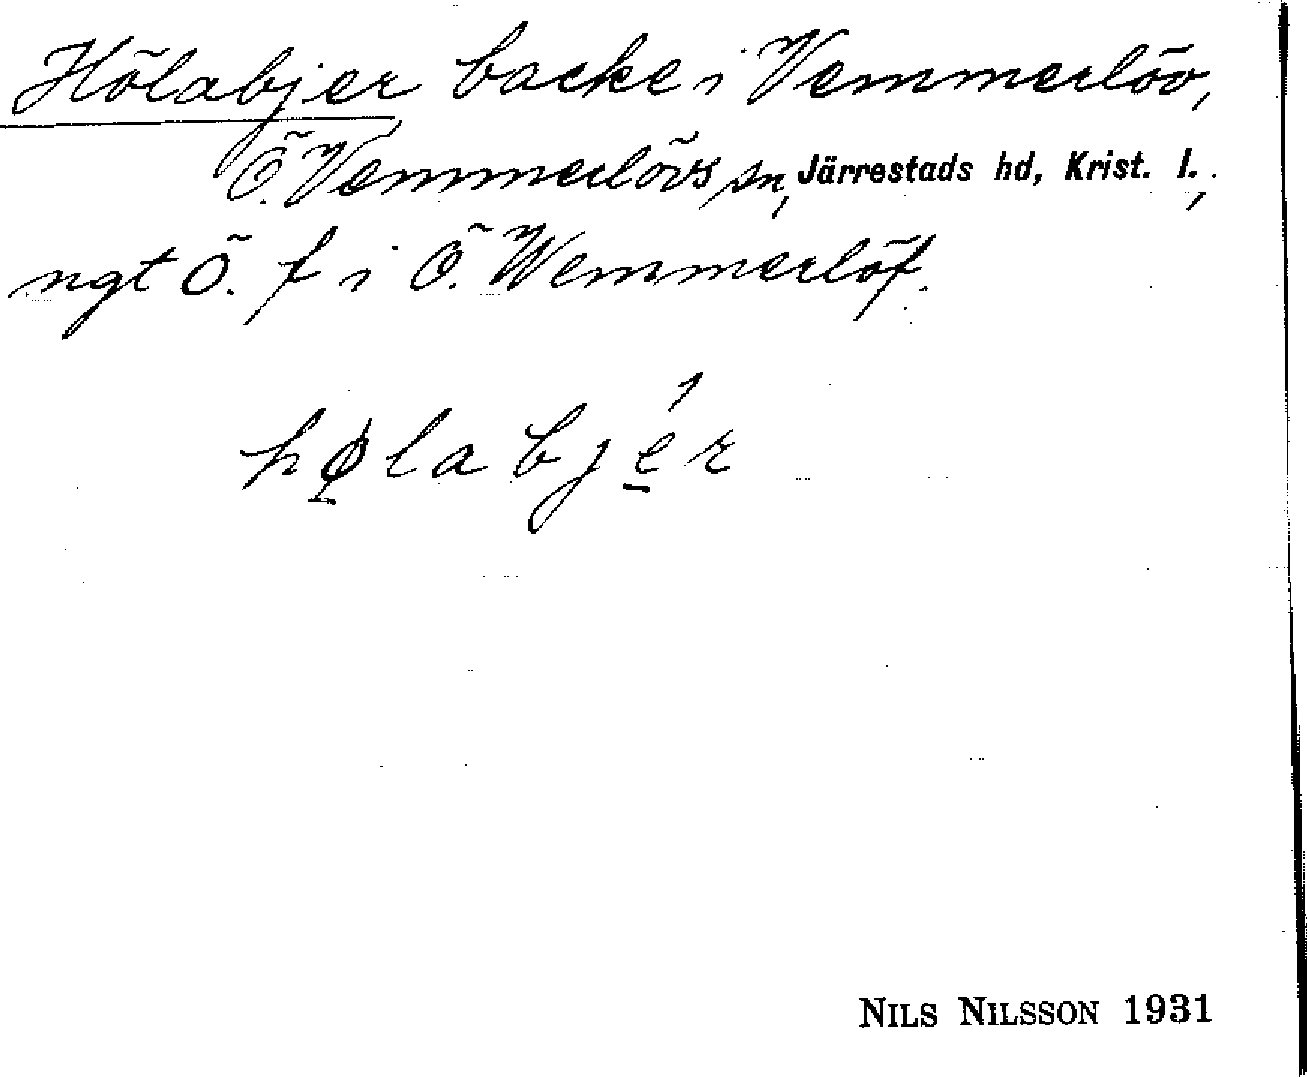 Hölabjer backe i Vemmerlöv,
Ö. Vemmerlövs sn, Järrestads hd, Krist. l.,
ngt Ö. f i Ö. Wemmerlöf.
hølabjér
NILS NILSSON 1931